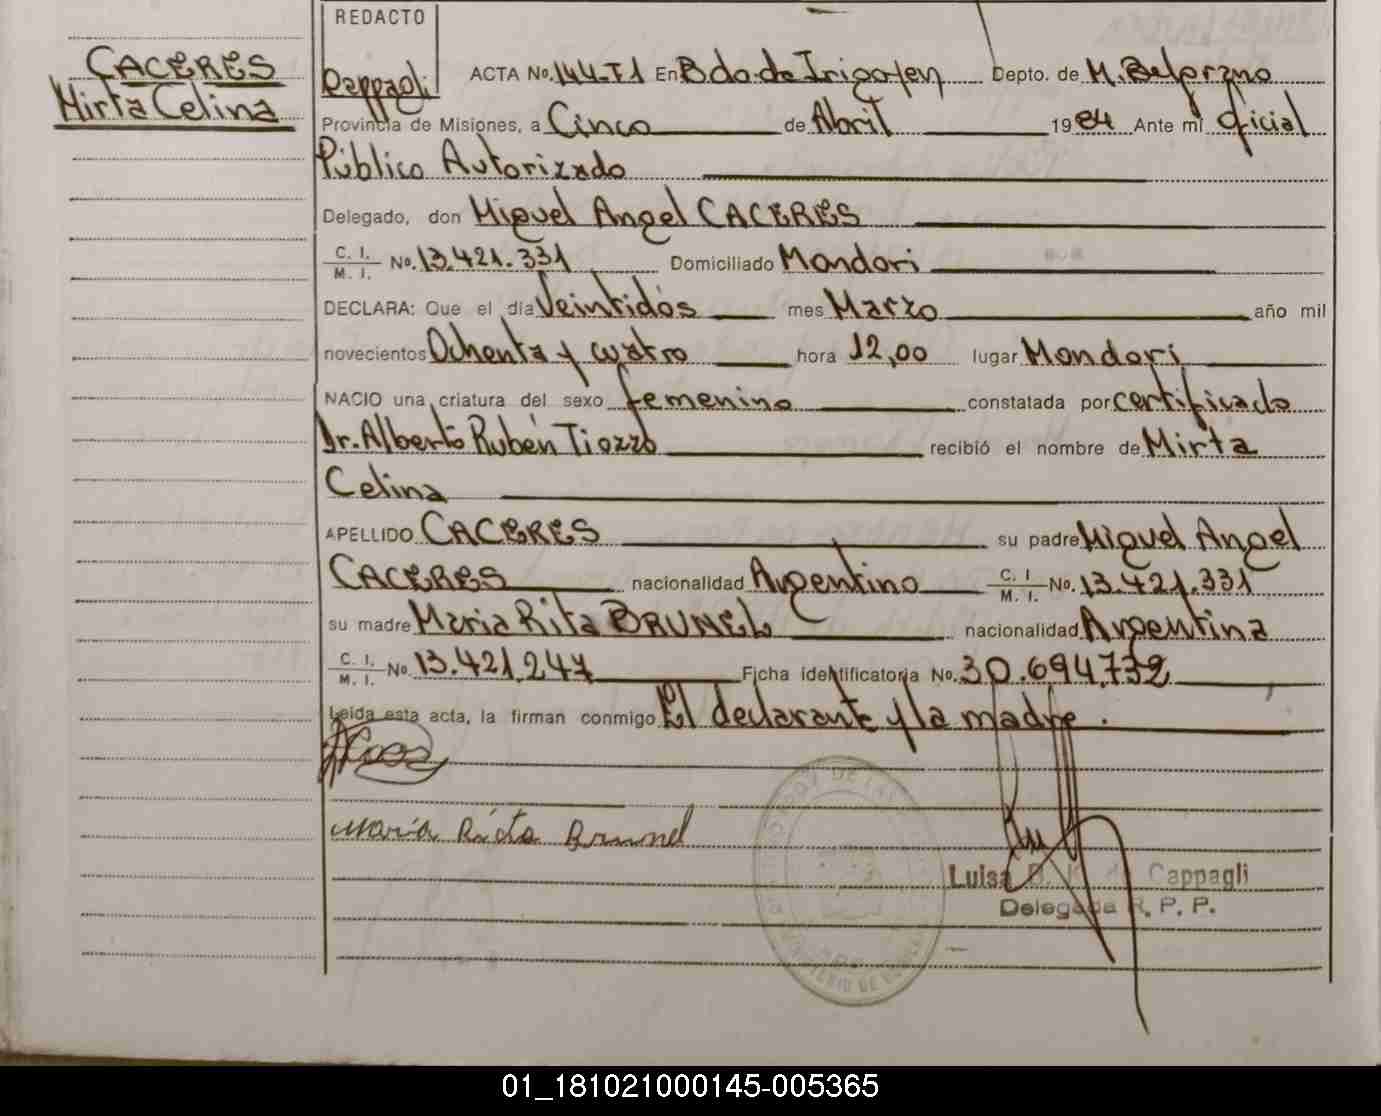 REDACTO
CACERES
Mirta Celina
Cappagli ACTA No. 144-T1 En Bdo. de Irigoyen Depto. de M. Belgrano
Provincia de Misiones, a Cinco de Abril 1984 Ante mi Oficial
Público Autorizado
Delegado, don Miguel Angel CACERES
C. I. M. I. No. 13.421.331 Domiciliado Mondori
DECLARA: Que el día Veintidós mes Marzo año mil
novecientos Ochenta y cuatro hora 12,00 lugar Mondori
NACIO una criatura del sexo femenino constatada por certificado
Dr. Alberto Rubén Tiozzo recibió el nombre de Mirta
Celina
APELLIDO CACERES su padre Miguel Angel
CACERES nacionalidad Argentino C. I M. I. No. 13.421.331
su madre Maria Rita BRUNEL nacionalidad Argentina
C. I. M. I. No. 13.421.247 Ficha identificatoria No. 30.694.732
Leida esta acta, la firman conmigo El declarante y la madre.
María Rita Brunel
Luisa B. K. de Cappagli
Delegada R. P. P.
01_181021000145-005365